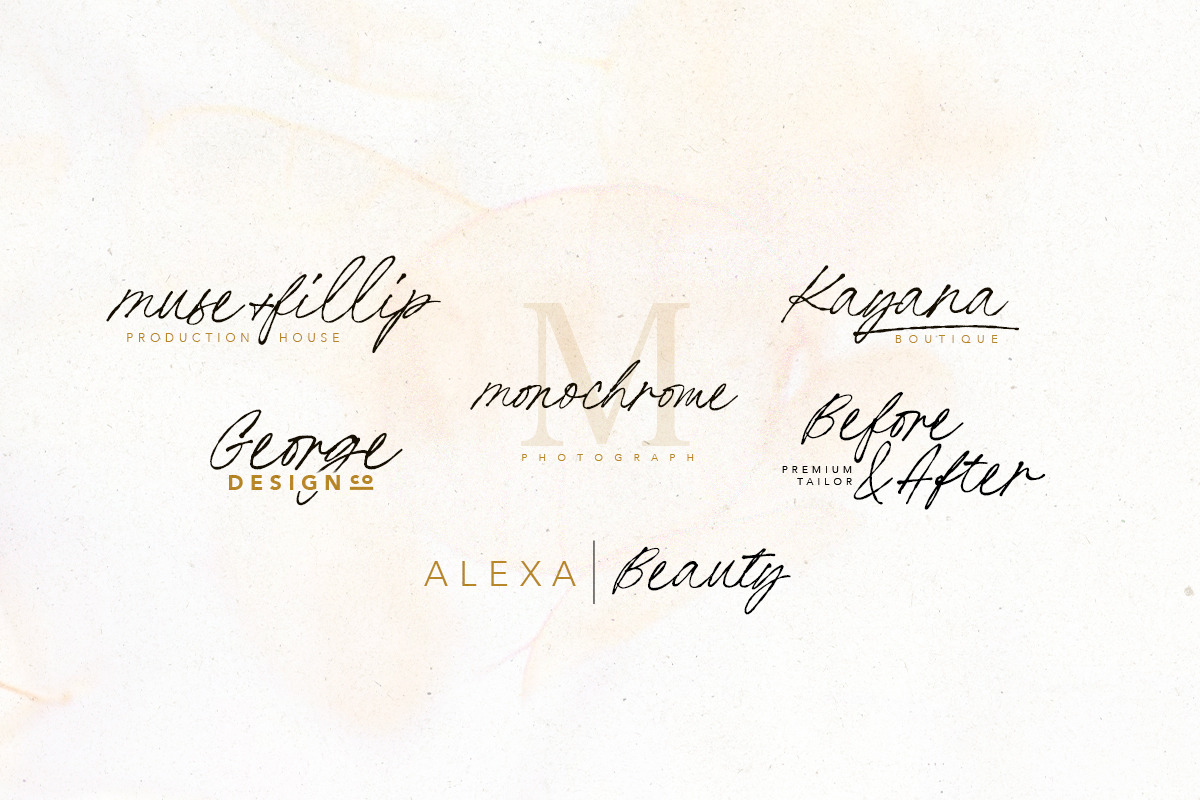 muse+fillip
PRODUCTION HOUSE
George
DESIGN CO
M
monochrome
PHOTOGRAPH
Kayana
BOUTIQUE
Before
& After
PREMIUM
TAILOR
ALEXA | Beauty